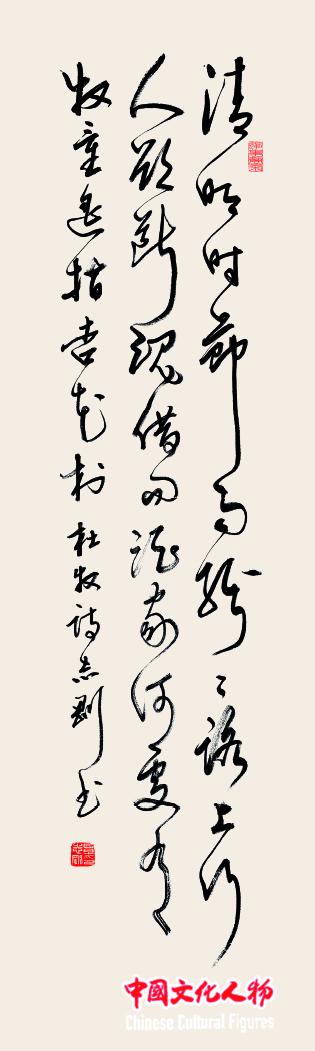 清明时节雨纷々路上行
人欲断魂借问酒家何处有
牧童遥指杏花村 杜牧诗志刚书
中國文化人物
Chinese Cultural Figures